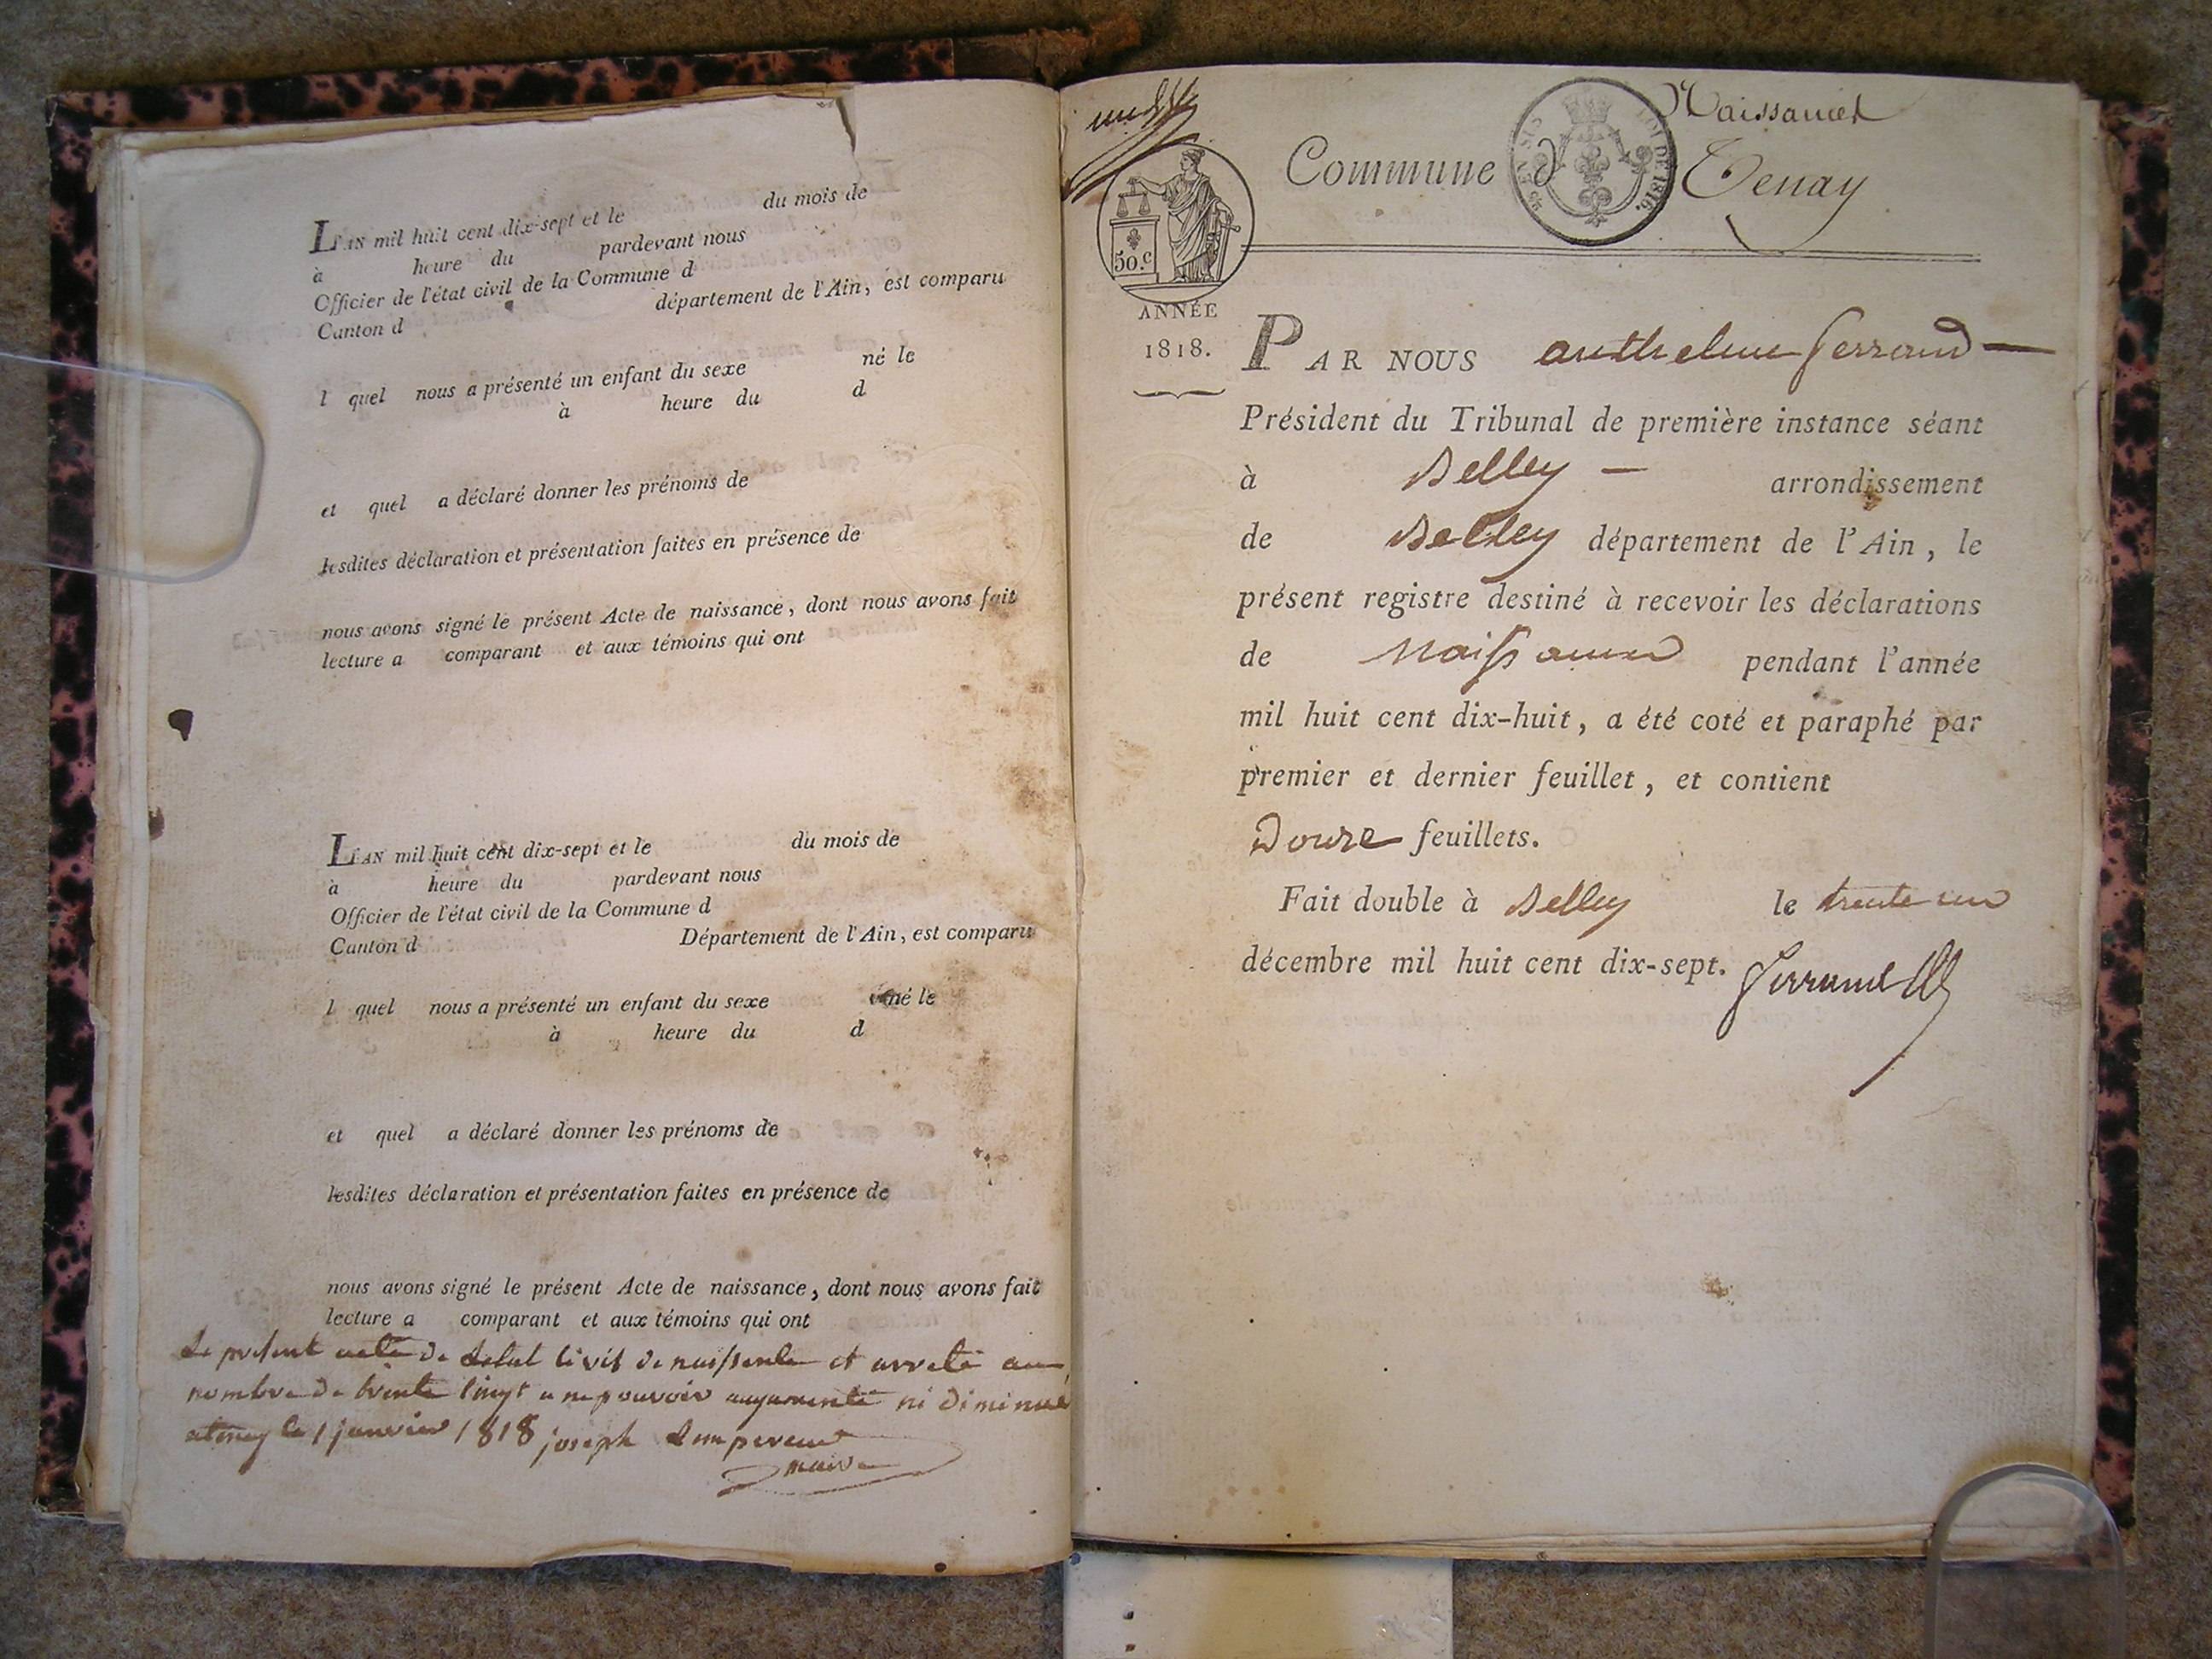 L'AN mil huit cent dix-sept et le du mois de
à heure du pardevant nous
Officier de l'état civil de la Commune d
Canton d département de l'Ain, est comparu
l quel nous a présenté un enfant du sexe né le
à heure du d
et quel a déclaré donner les prénoms de
lesdites déclaration et présentation faites en présence de
nous avons signé le présent Acte de naissance, dont nous avons fait
lecture a comparant et aux témoins qui ont
L'AN mil huit cent dix-sept et le du mois de
à heure du pardevant nous
Officier de l'état civil de la Commune d
Canton d Département de l'Ain, est comparu
l quel nous a présenté un enfant du sexe né le
à heure du d
et quel a déclaré donner les prénoms de
lesdites déclaration et présentation faites en présence de
nous avons signé le présent Acte de naissance, dont nous avons fait
lecture a comparant et aux témoins qui ont
Le present acte de civil de et arreté au
nombre de trente vingt a ne pouvoir augmenté ni diminué
a tenay le 1 janvier 1818 joseph Lempereur
maire
Naissances
LOI DE 1816.
Commune d Tenay
50.c
ANNÉE
1818.
PAR NOUS anthelme ferrand
Président du Tribunal de première instance séant
à Belley arrondissement
de Belley département de l'Ain, le
présent registre destiné à recevoir les déclarations
de Naissances pendant l'année
mil huit cent dix-huit, a été coté et paraphé par
premier et dernier feuillet, et contient
Douze feuillets.
Fait double à Belley le trente un
décembre mil huit cent dix-sept.
ferrand